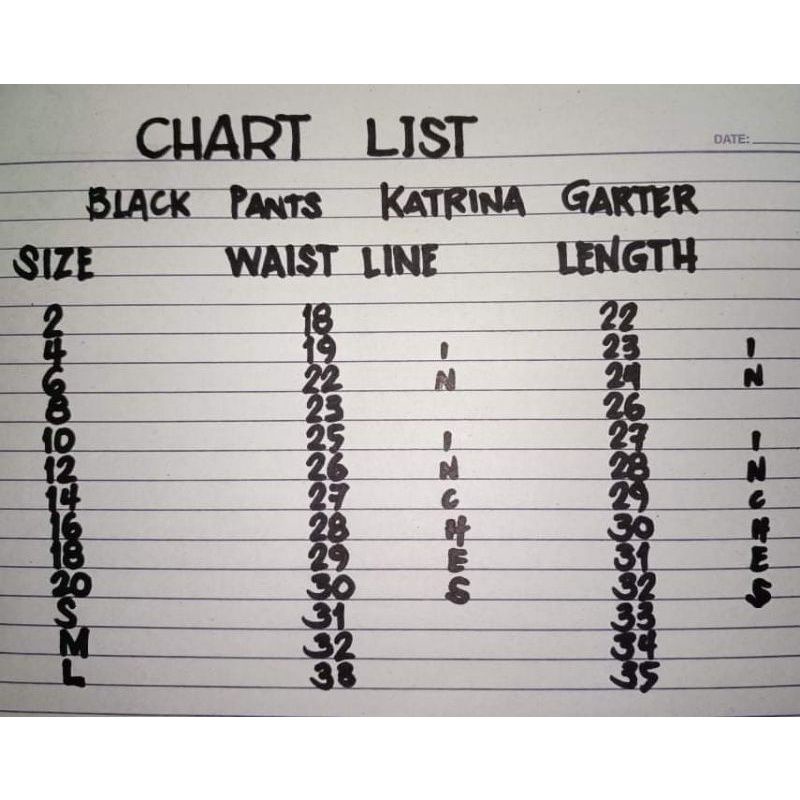 CHART LIST
DATE:
BLACK PANTS KATRINA GARTER
SIZE WAIST LINE LENGTH
2 18 22
4 19 I 23 I
6 22 N 24 N
8 23 26
10 25 I 27 I
12 26 N 28 N
14 27 C 29 C
16 28 H 30 H
18 29 E 31 E
20 30 S 32 S
S 31 33
M 32 34
L 33 35